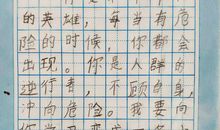 的英雄，每当有危
险的时候，你都会
出现。你是人群的
逆行者，不顾自身，
冲向危险。我要向